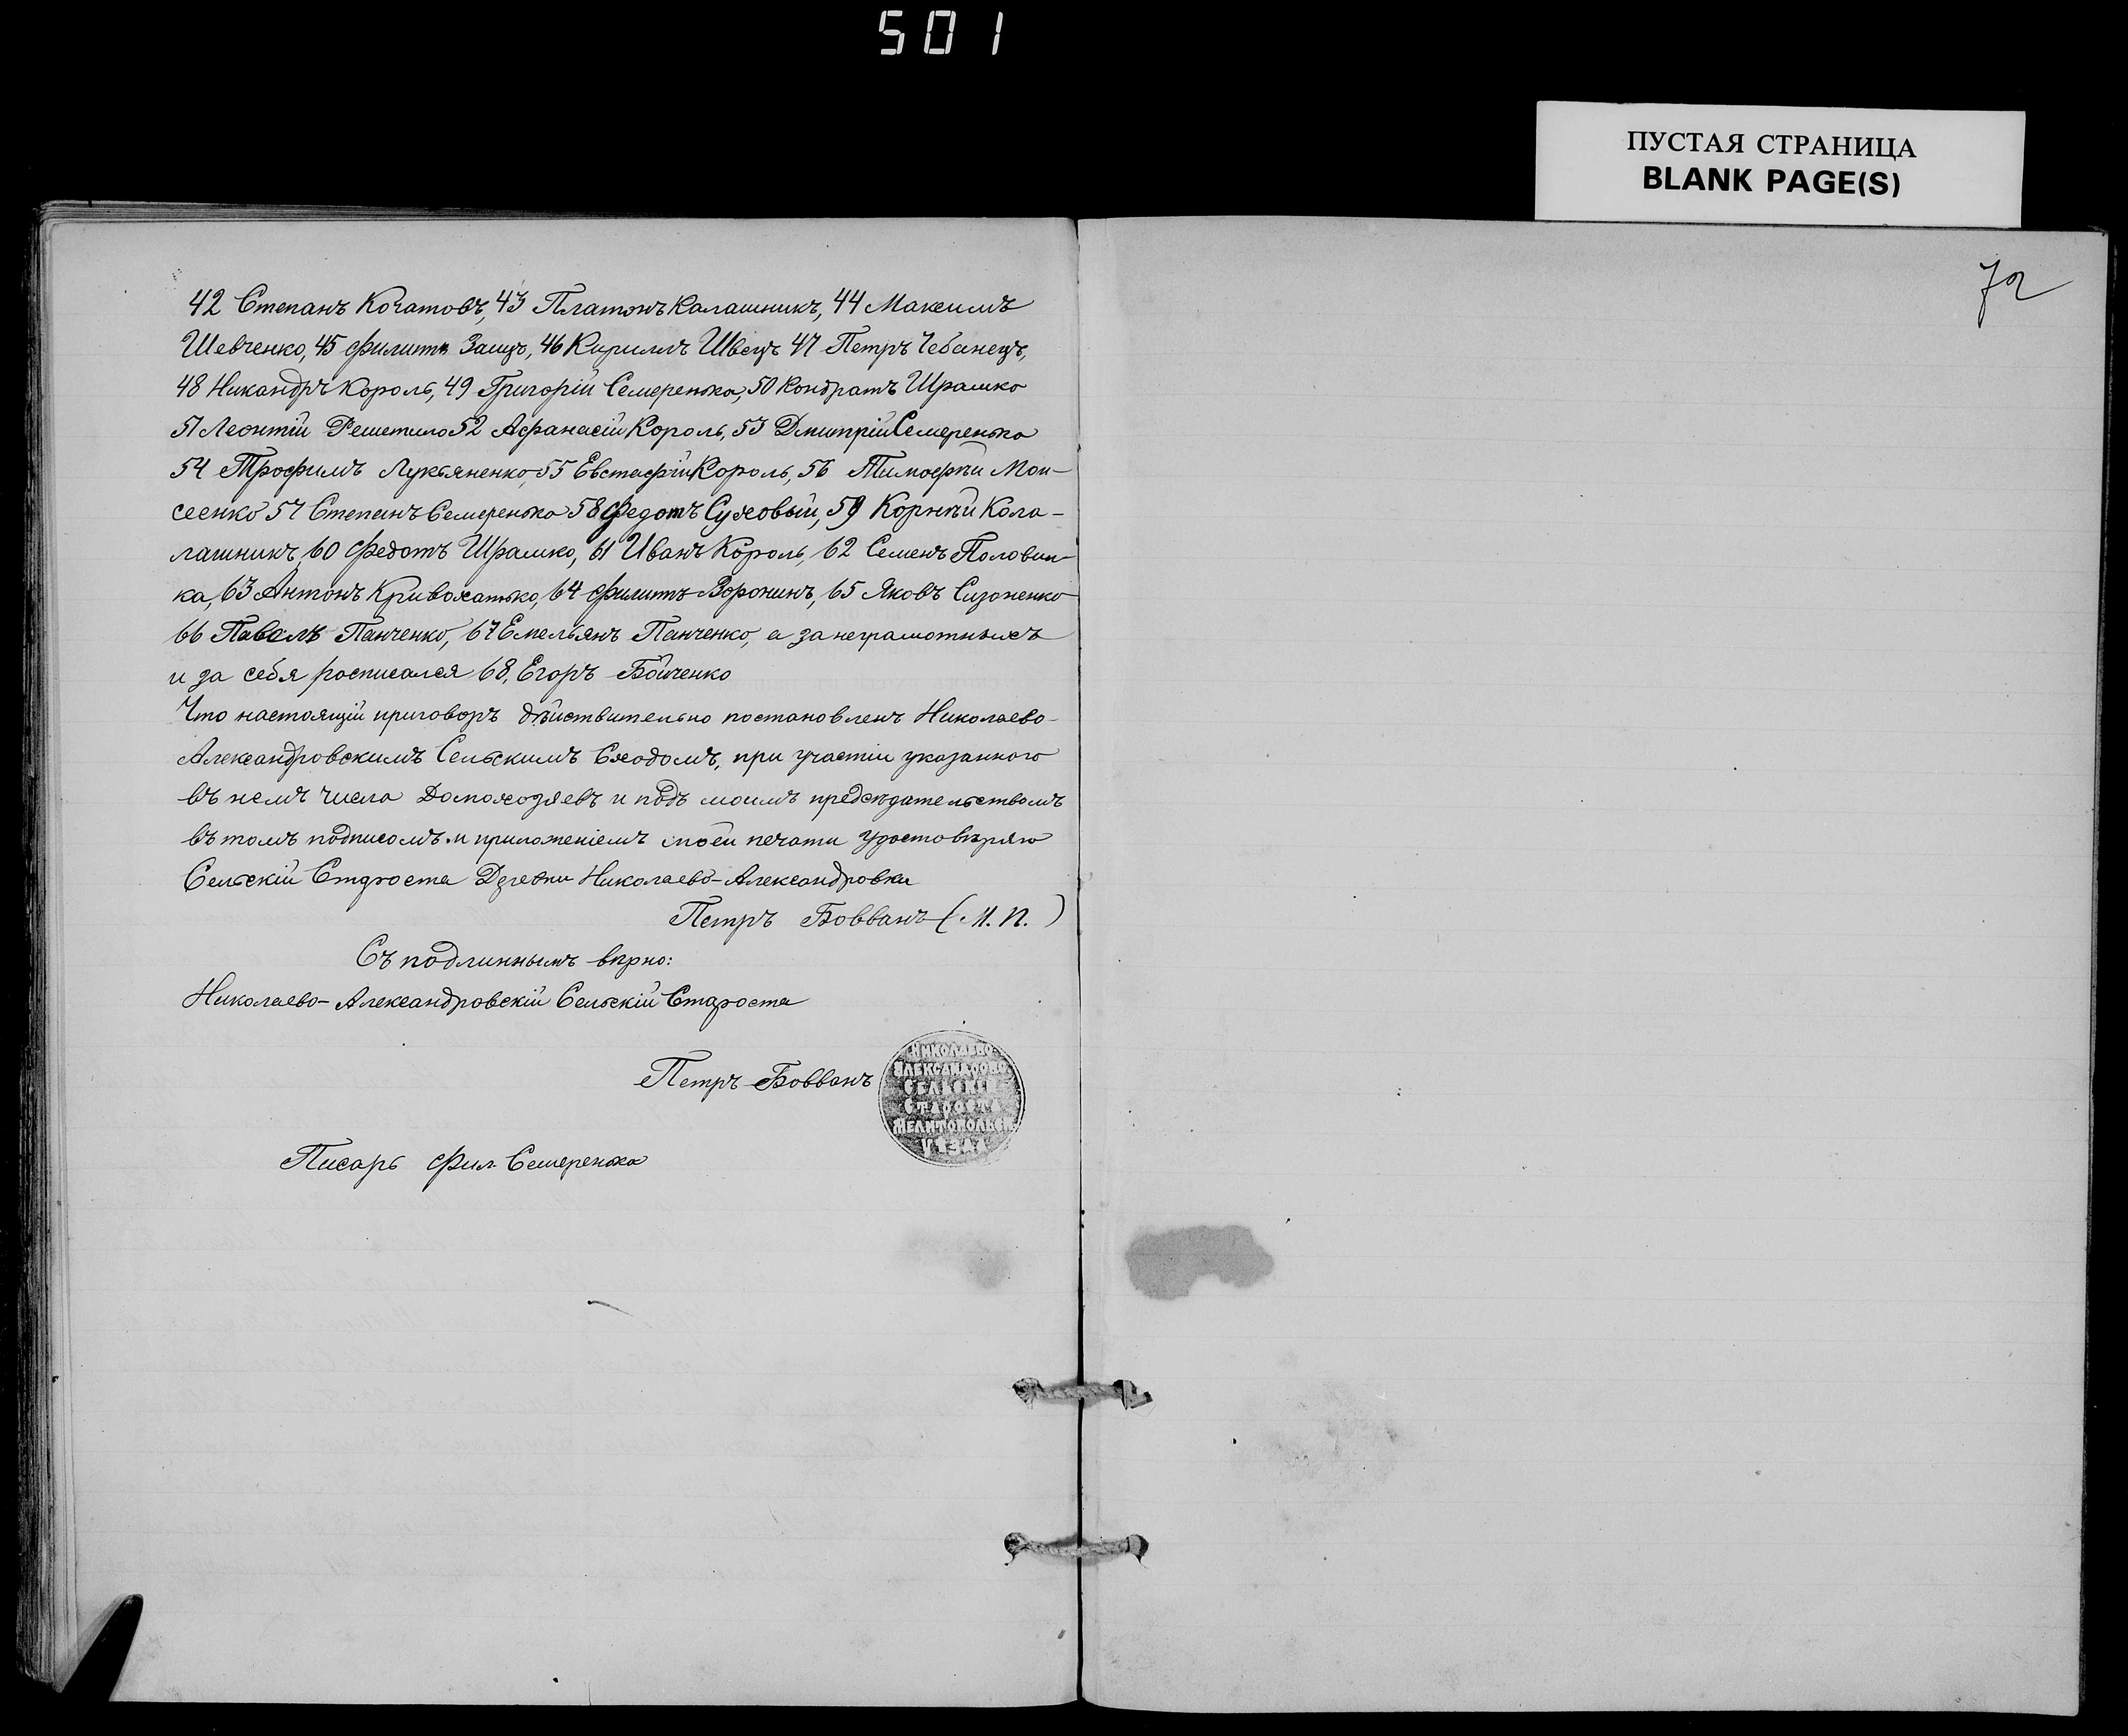 501
ПУСТАЯ СТРАНИЦА
BLANK PAGE(S)
72
42 Степанъ Кочатовъ, 43 Платонъ Калашникъ, 44 Максимъ
Шевченко, 45 Филипъ Заицъ, 46 Кирилъ Швецъ 47 Петръ Чебанецъ,
48 Никандръ Король, 49 Григорій Семеренка, 50 Кондратъ Шрамко
51 Леонтій Решетило 52 Афанасій Король, 53 Дмитрій Семеренька
54 Трофимъ Лукьяненко, 55 Евстафій Король, 56 Тимофѣй Мои-
сеенко 57 Степанъ Семеренька 58 Федотъ Суховый, 59 Корнѣй Кола-
лашникъ, 60 Федотъ Шрамко, 61 Иванъ Король, 62 Семенъ Половин-
ка, 63 Антонъ Кривохатько, 64 Филипъ Воронинъ, 65 Яковъ Сизоненко
66 Павелъ Панченко, 67 Емельянъ Панченко, а за неграмотныхъ
и за себя росписался 68, Егоръ Бойченко
Что настоящій приговоръ дѣйствительно постановленъ Николаево-
Александровскимъ Сельскимъ Сходомъ, при участіи указанного
въ немъ числа Домохозяевъ и подъ моимъ предсѣдательствомъ
въ томъ подписомъ и приложеніемъ моей печати удостовѣряю
Сельскій Староста Деревни Николаево-Александровки
Петръ Бовванъ (М. П.)
Съ подлиннымъ вѣрно:
Николаево-Александровскій Сельскій Староста
Петръ Бовванъ
НИКОЛАЕВО
АЛЕКСАНДРОВС
СЕЛЬСКІЙ
СТАРОСТА
МЕЛИТОПОЛЬСК
УѢЗДА
Писарь Фил. Семеренька